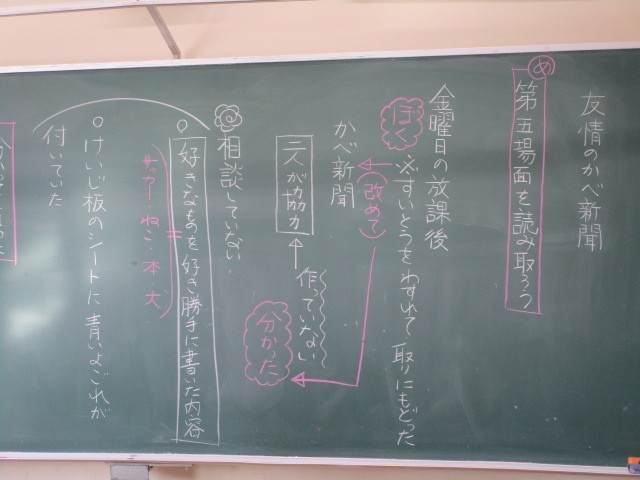 友情のかべ新聞
め
第五場面を読み取ろう
金曜日の放課後
ぼく
※すいとうをわすれて取りにもどった
(改めて)
かべ新聞
二人が協力
作っていない
分かった
相談していない
○好きなものを好き勝手に書いた内容
ねこ、本、犬
○けいじ板のシートに青いよごれが
付いていた